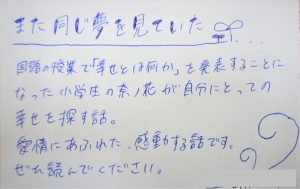 また同じ夢を見ていた
国語の授業で「幸せとは何か」を発表することに
なった小学生の奈ノ花が自分にとっての
幸せを探す話。
愛情にあふれた、感動する話です。
ぜひ読んでください。